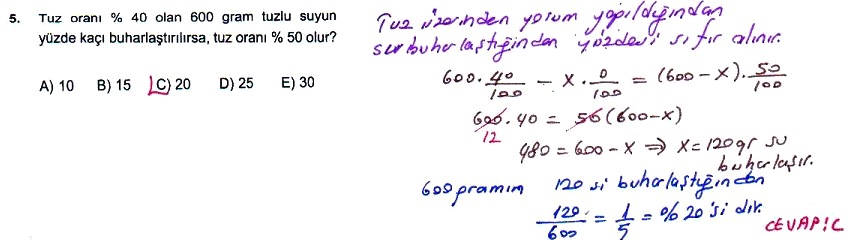 5. Tuz oranı % 40 olan 600 gram tuzlu suyun
yüzde kaçı buharlaştırılırsa, tuz oranı % 50 olur?
A) 10 B) 15 C) 20 D) 25 E) 30
Tuz üzerinden yorum yapıldığından
su buharlaştığından yüzdesi sıfır alınır.
600 . 40/100 - x . 0/100 = (600 - x) . 50/100
600 . 40 = 50 (600 - x)
12
480 = 600 - x ⇒ x = 120 gr su
buharlaşır.
600 gramın 120 si buharlaştığından
120/600 = 1/5 = % 20 'si dir.
CEVAP: C